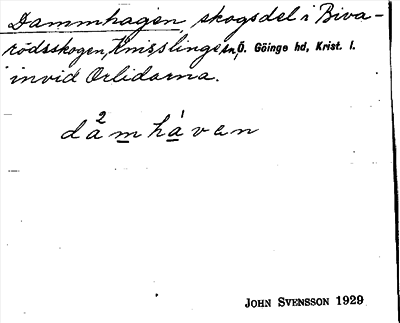 Dammhagen, skogsdel i Biva-
rödsskogen, Knisslinge sn, Ö. Göinge hd, Krist. l.
invid Orlidarna.
da²mhá¹ven
JOHN SVENSSON 1929